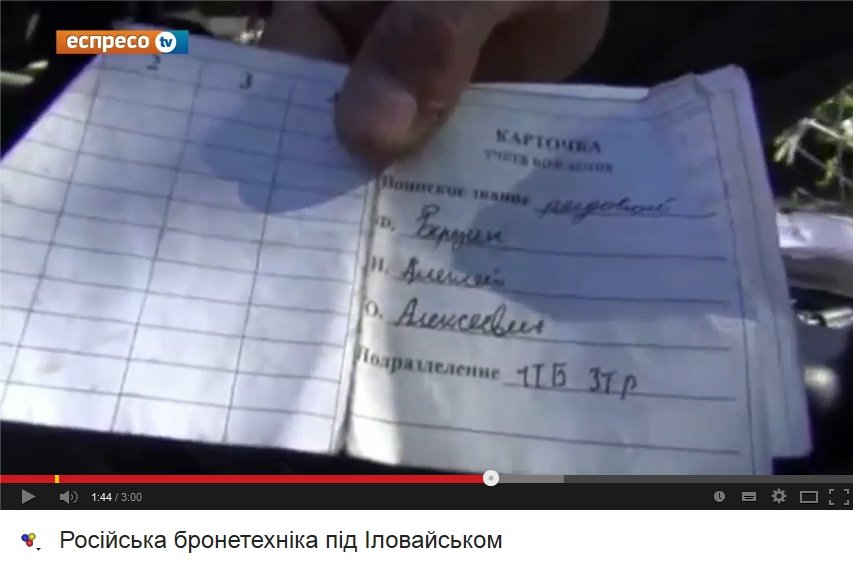 еспресо tv
2 3
КАРТОЧКА
учета вождения
Воинское звание рядовой
Ф.
И. Алексей
О. Алексеевич
Подразделение 1ТБ 3ТР
1:44 / 3:00
Російська бронетехніка під Іловайськом